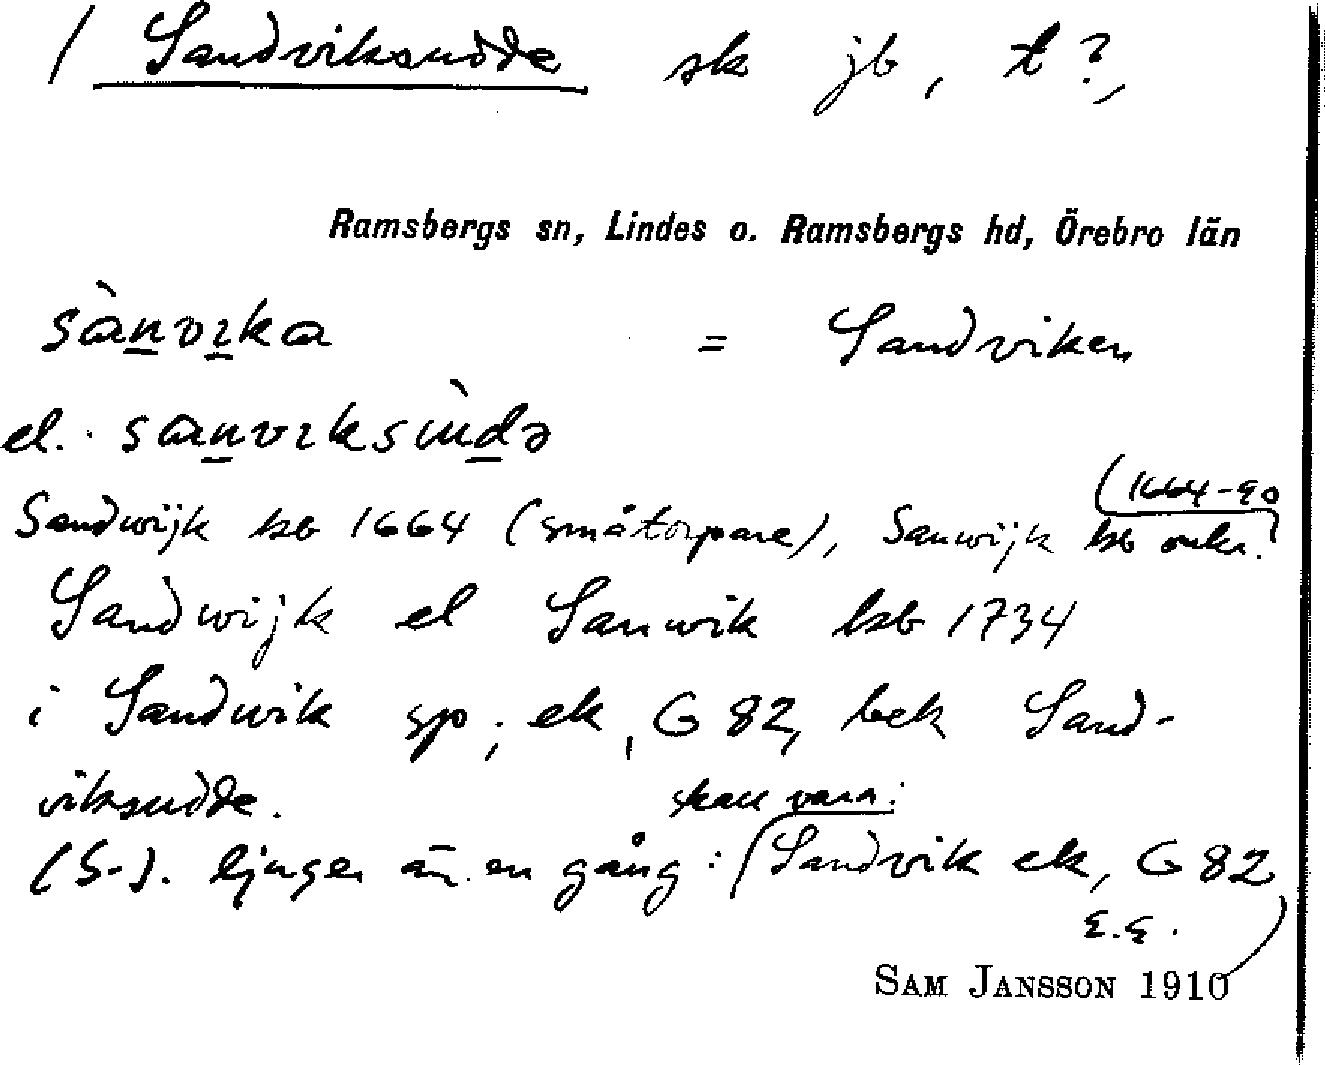 / Sandviksudde sk jb, t?,
Ramsbergs sn, Lindes o. Ramsbergs hd, Örebro län
sànvıka = Sandviken
el. sanvıksùdə
(1664-90
Sandwijk ksb 1664 (småtorpare), Sanwijk ksb
Sandwijk el Sanwik ksb 1734
i Sandwik sp; ek, G 82, bek Sand-
viksudde. skall vara:
(S-). ljuger än en gång: Sandvik ek, G 82
E.E.
SAM JANSSON 1910